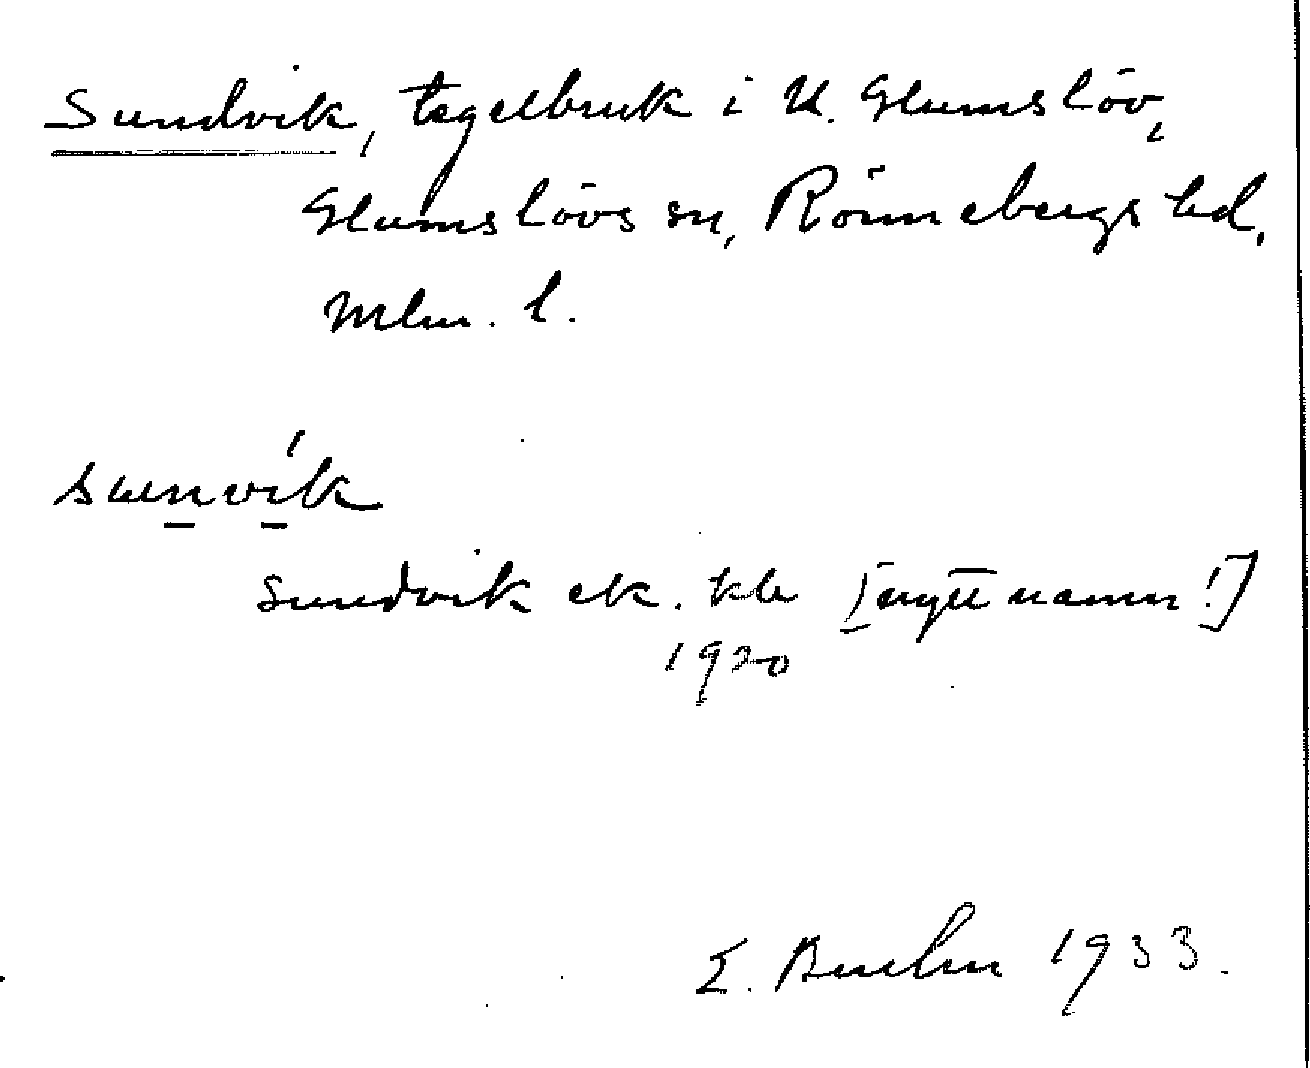 Sundvik, tegelbruk i N. Glumslöv,
Glumslövs sn, Rönnebergs hd,
Mlm. l.
sunvik
Sundvik ek. kb [nytt namn!]
1920
1933.